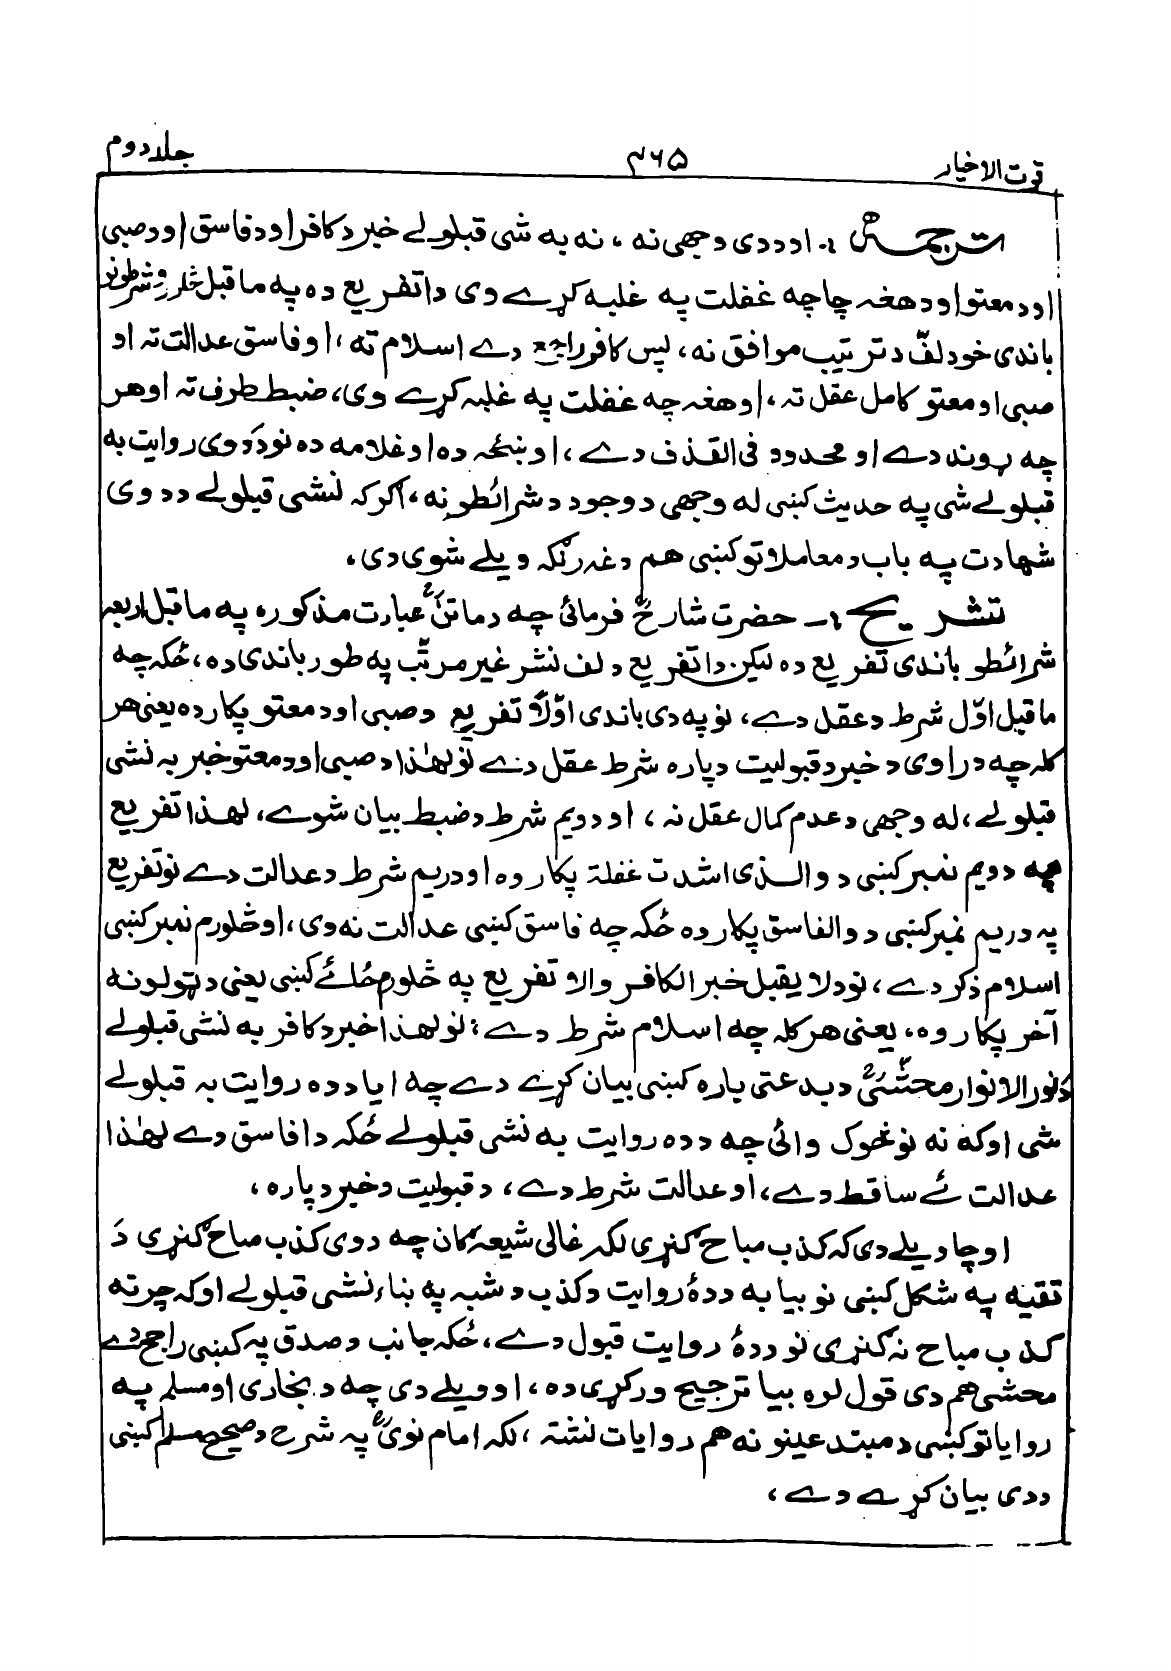 قوت الاخیار
۳۶۵
جلد دوم
ترجمہ :- او ددی وجهی نه ، نه به شی قبلولے خبر د کافر او د فاسق او د صبی
او د معتو او د هغه چا چه غفلت په غلبه کړے وی دا تفریع ده په ماقبل څلور شرطونو
باندی خو د لفّ د ترتیب موافق نه، پس کافر راجع دے اسلام ته ، او فاسق عدالت ته او
صبی او معتو کامل عقل ته ، او هغه چه غفلت په غلبه کړے وی، ضبط طرف ته او هر
چه ړوند دے او محدود فی القذف دے ، او ښځه ده او غلامه ده نو د دوی روایت به
قبلولے شی په حدیث کښی له وجهی د وجود د شرائطو نه ، اګر که نشی قبلولے د دوی
شهادت په باب د معاملاتو کښی هم دغه رنګه ویلے شوی دی ،
تشریح :- حضرت شارحؒ فرمائی چه د ماتنؒ عبارت مذکوره په ماقبل اربعه
شرائطو باندی تفریع ده لیکن دا تفریع د لف نشر غیر مرتّب په طور باندی ده ، ځکه چه
ماقبل اوّل شرط د عقل دے ، نو په دی باندی اوّلاً تفریع د صبی او د معتو پکار ده یعنی هر
کله چه د راوی د خبر د قبولیت دپاره شرط عقل دے نو لهٰذا د صبی او د معتو خبر به نشی
قبلولے ، له وجهی د عدم کمال عقل نه ، او دویم شرط د ضبط بیان شوے ، لهذا تفریع
په دویم نمبر کښی د والذی اشدت غفلة پکار وه او دریم شرط د عدالت دے نو تفریع
په دریم نمبر کښی د والفاسق پکار ده ځکه چه فاسق کښی عدالت نه وی ، او څلورم نمبر کښی
اسلام ذکر دے ، نو د لا یقبل خبر الکافر والا تفریع په څلورم ځائے کښی یعنی د ټولو نه
آخر پکار وه ، یعنی هر کله چه اسلام شرط دے ؛ نو لهذا خبر د کافر به نشی قبلولے
د نور الانوار محشیؒ د بدعتی باره کښی بیان کړے دے چه ایا د ده روایت به قبلولے
شی او که نه نو څوک وائی چه د ده روایت به نشی قبلولے ځکه دا فاسق دے لهٰذا
عدالت ئے ساقط دے ، او عدالت شرط دے ، د قبولیت د خبر دپاره ،
او چا ویلے دی که کذب مباح ګنړی لکه غالی شیعه ګان چه دوی کذب مباح ګنړی دَ
تقیه په شکل کښی نو بیا به د دهٔ روایت د کذب د شبه په بناء نشی قبلولے او که چرته
کذب مباح نه ګنړی نو د دهٔ روایت قبول دے ، ځکه جانب د صدق په کښی راجح دے
محشی هم دی قول لره بیا ترجیح ورکړی ده ، او ویلے دی چه د بخاری او مسلم په
روایاتو کښی د مبتدعینو نه هم روایات نشته ، لکه امام نویؒ په شرح د صحیح مسلم کښی
ددی بیان کړے دے ،